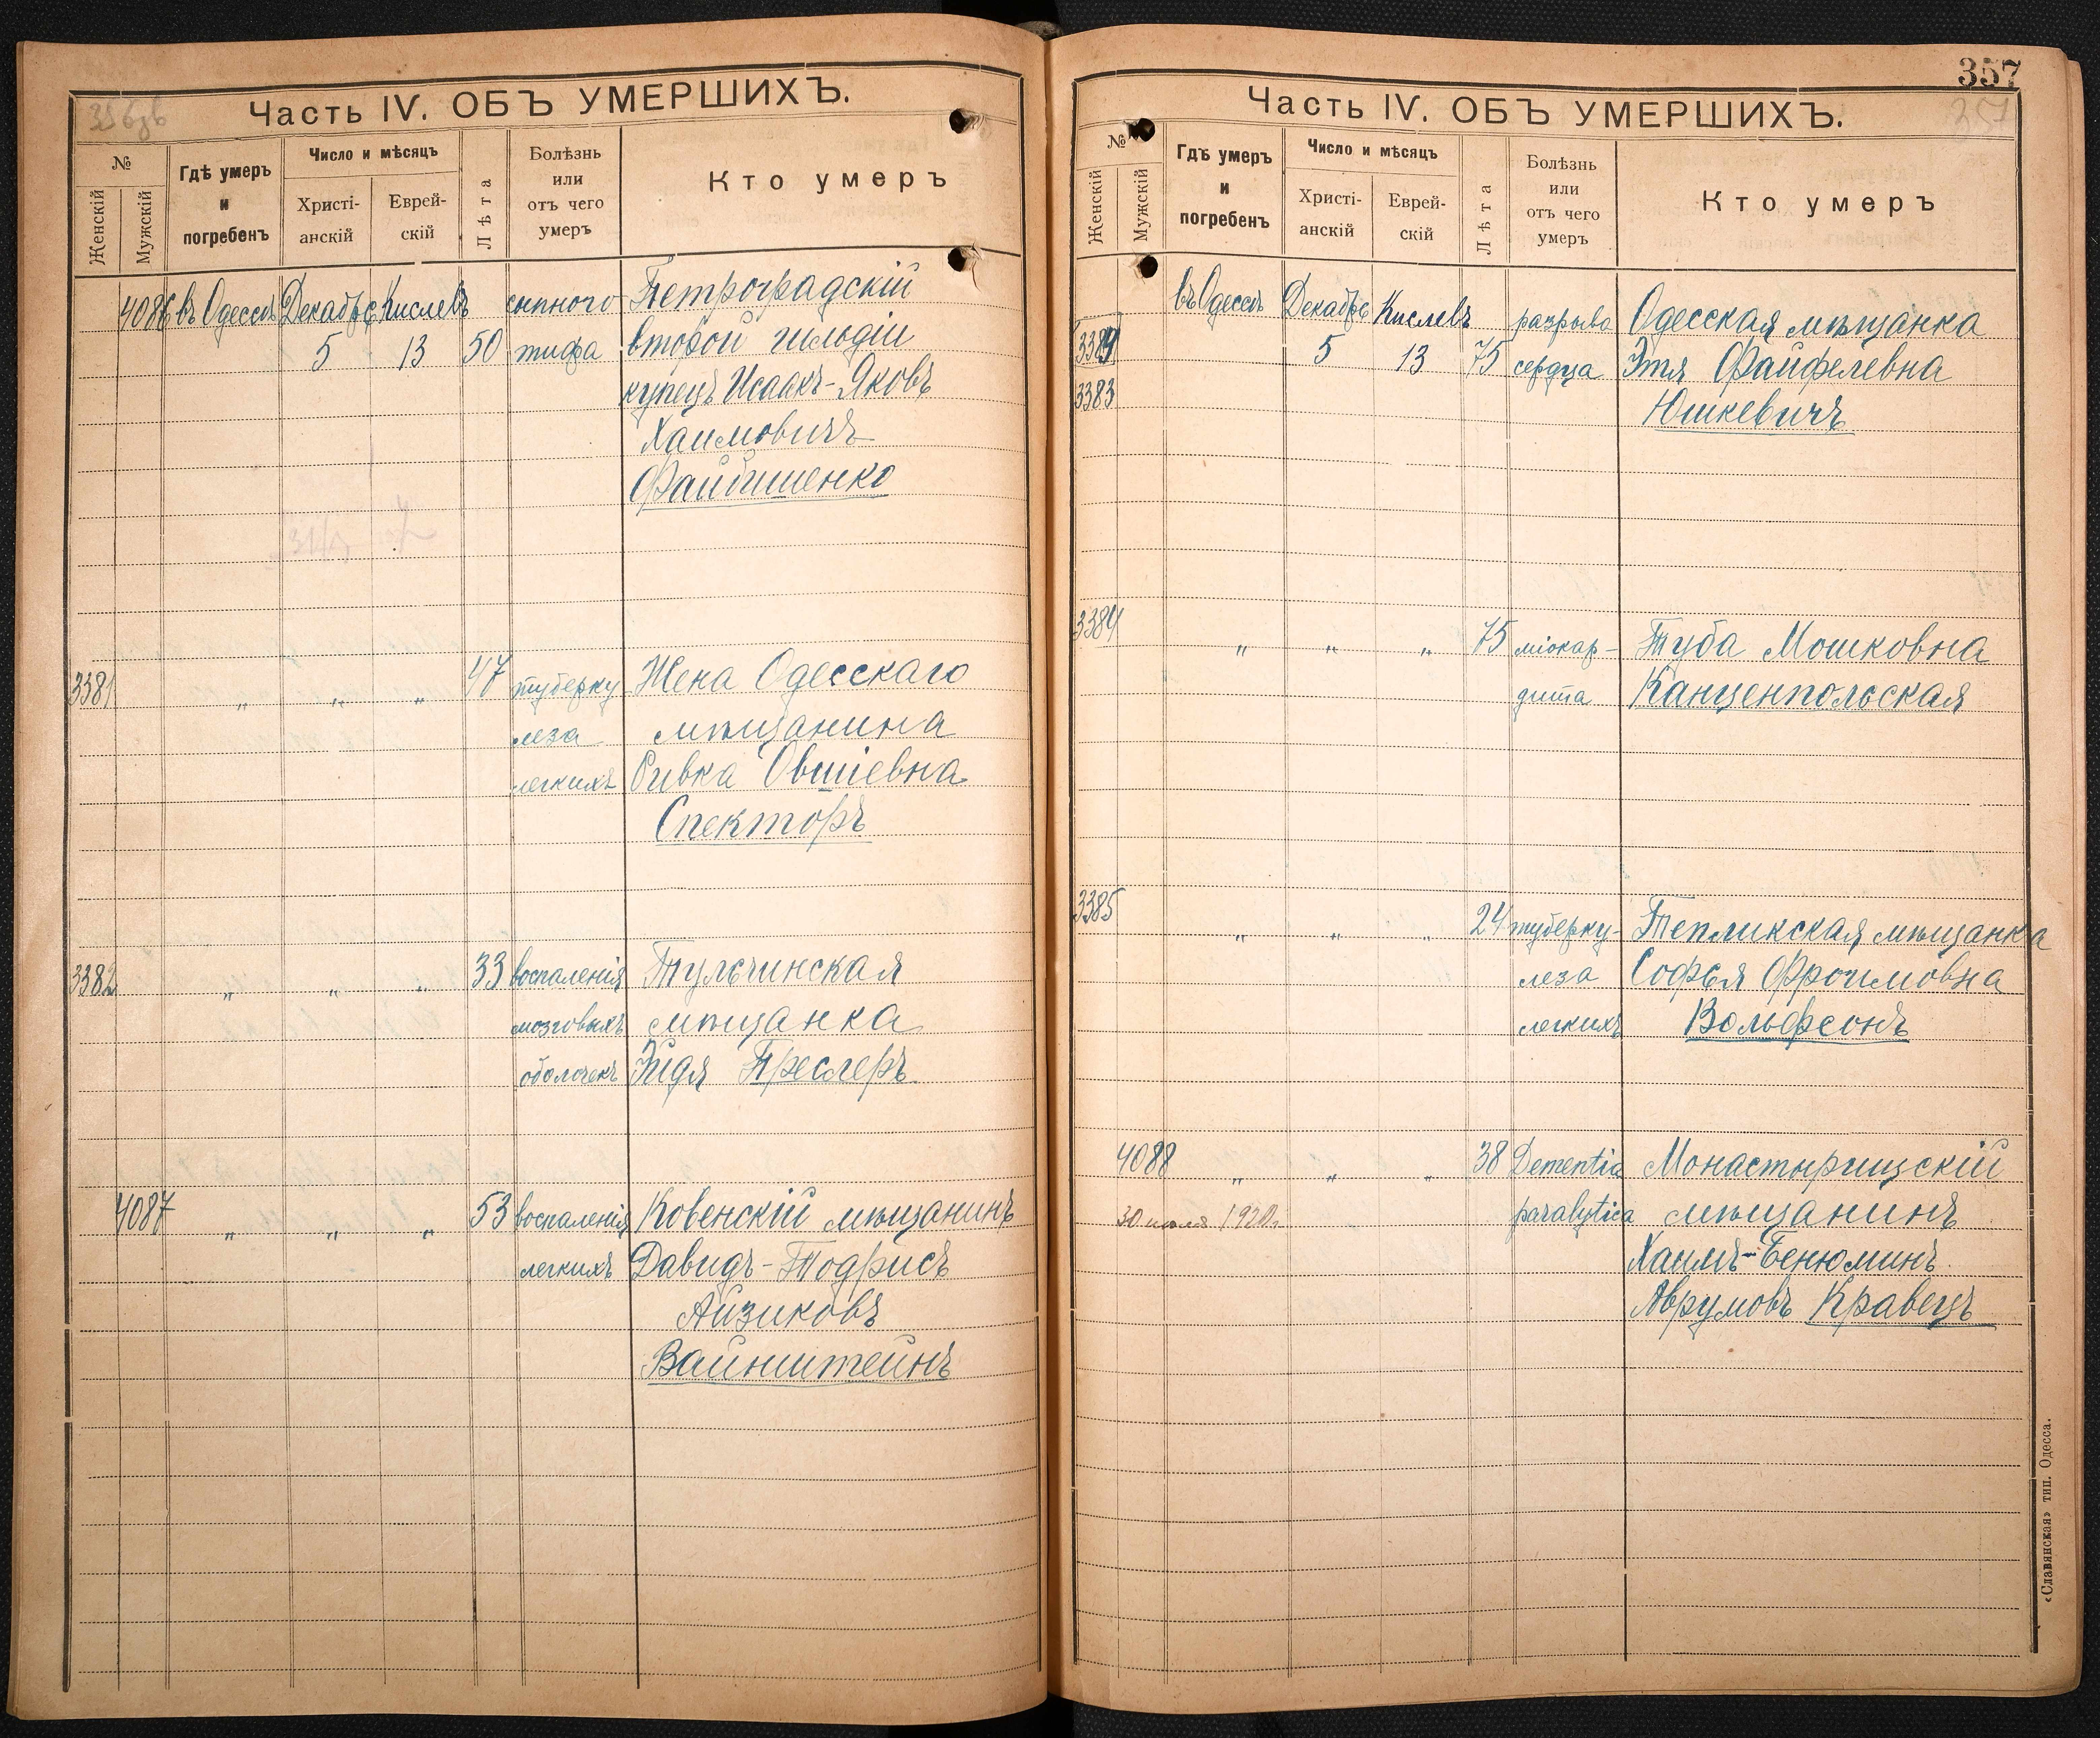 Часть IV. ОБЪ УМЕРШИХЪ.
№
Женскій
Мужскій
Гдѣ умеръ
и
погребенъ
Число и мѣсяцъ
Христі-
анскій
Еврей-
скій
Лѣта
Болѣзнь
или
отъ чего
умеръ
Кто умеръ
4086 въ Одессѣ Декабрь Кислевъ сыпного Петроградскій
5 13 50 тифа второй гильдіи
купецъ Исаакъ-Яковъ
Хаимовичъ
Файбишенко
3381 " " " 47 туберку Жена Одесскаго
леза мѣщанина
легкихъ Ривка Овшіевна
Спекторъ
3382 " " " 33 воспаленія Тульчинская
мозговыхъ мѣщанка
оболочекъ Эйдя Преслеръ
4087 " " " 53 воспаленія Ковенскій мѣщанинъ
легкихъ Давидъ-Тодрисъ
Айзиковъ
Вайнштейнъ
357
357
Часть IV. ОБЪ УМЕРШИХЪ.
№
Женскій
Мужскій
Гдѣ умеръ
и
погребенъ
Число и мѣсяцъ
Христі-
анскій
Еврей-
скій
Лѣта
Болѣзнь
или
отъ чего
умеръ
Кто умеръ
въ Одессѣ Декабрь Кислевъ разрыва Одесская мѣщанка
5 13 75 сердца Этя Файфелевна
3383 Юшкевичъ
3384 " " " 75 міокар- Туба Мошковна
дита Канценпольская
3385 " " " 24 туберку- Тепликская мѣщанка
леза Софья Фроимовна
легкихъ Вольфсонъ
4088 " " " 38 Dementia Монастырищскій
30 1920г. paralytica мѣщанинъ
Хаимъ-Бенюминъ
Аврумовъ Кравецъ
«Славянская» тип. Одесса.